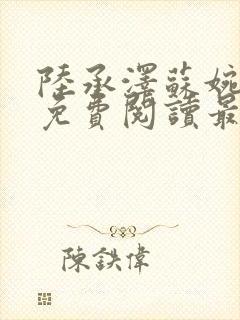 陸承澤蘇婉
免費閱讀最
陳鉄偉